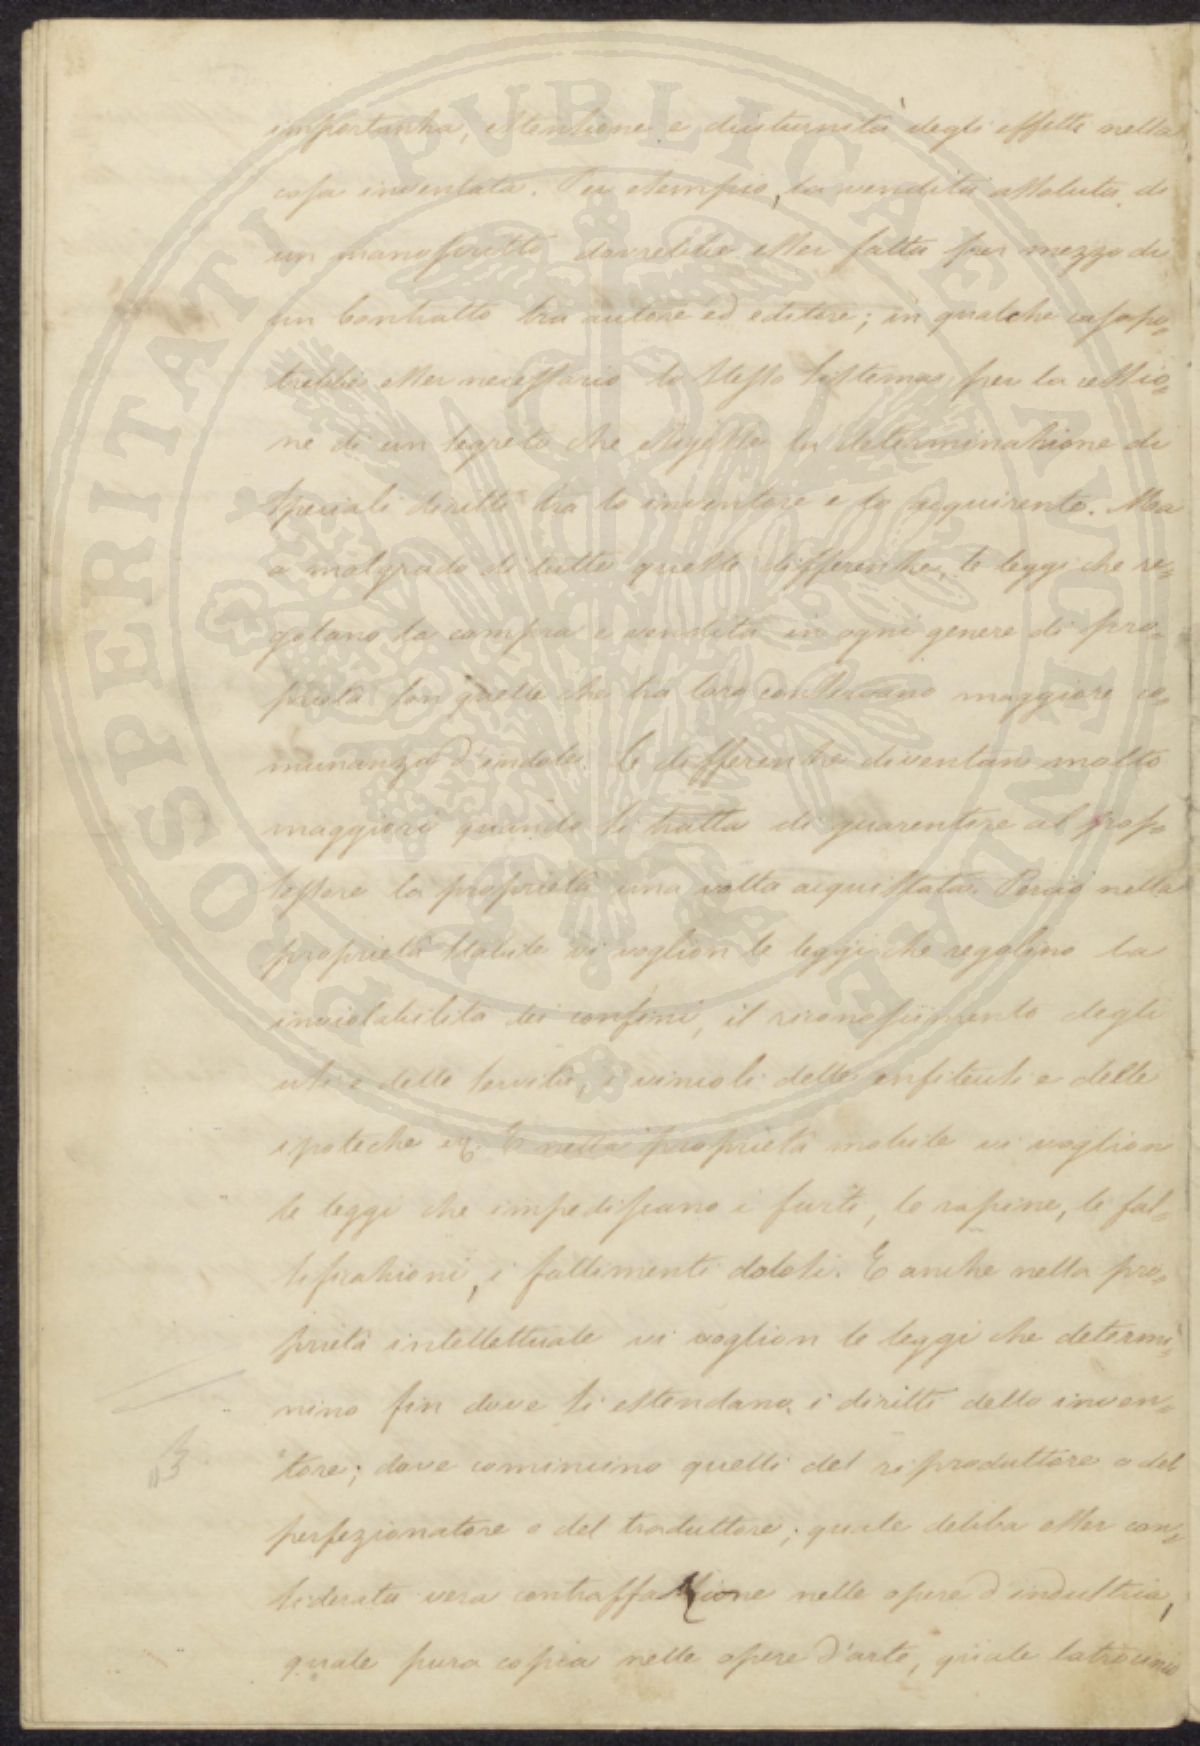 importanza, estensione e diuturnità degli effetti nella
cosa inventata. Per esempio, la vendita assoluta di
un manoscritto dovrebbe esser fatta per mezzo di
un Contratto tra autore ed editore; in qualche caso po-
trebbe esser necessario lo stesso sistema per la cessio-
ne di un segreto che esigesse la determinazione di
speciali diritti tra lo inventore e lo acquirente. Ma
a malgrado di tutte queste differenze, le leggi che re-
golano la compra e vendita in ogni genere di pro-
prietà son quelle che tra loro conservano maggiore co-
munanza d'indole. Le differenze diventan molto
maggiori quando si tratta di guarentire al pos-
sessore la proprietà una volta acquistata. Perciò nella
proprietà stabile vi voglion le leggi che regolino la
inviolabilità dei confini, il riconoscimento degli
usi e delle servitù, i vincoli delle enfiteusi e delle
ipoteche ec. E nella proprietà mobile vi voglion
le leggi che impediscano i furti, le rapine, le fal-
sificazioni, i fallimenti dolosi. E anche nella pro-
prietà intellettuale vi voglion le leggi che determi-
nino fin dove si estendano i diritti dello inven-
tore; dove comincino quelli del riproduttore o del
perfezionatore o del traduttore; quale debba esser con-
siderata vera contraffazione nelle opere d'industria,
quale pura copia nelle opere d'arte, quale latrocinio
PROSPERITATI PVBLICAE AVGENDAE